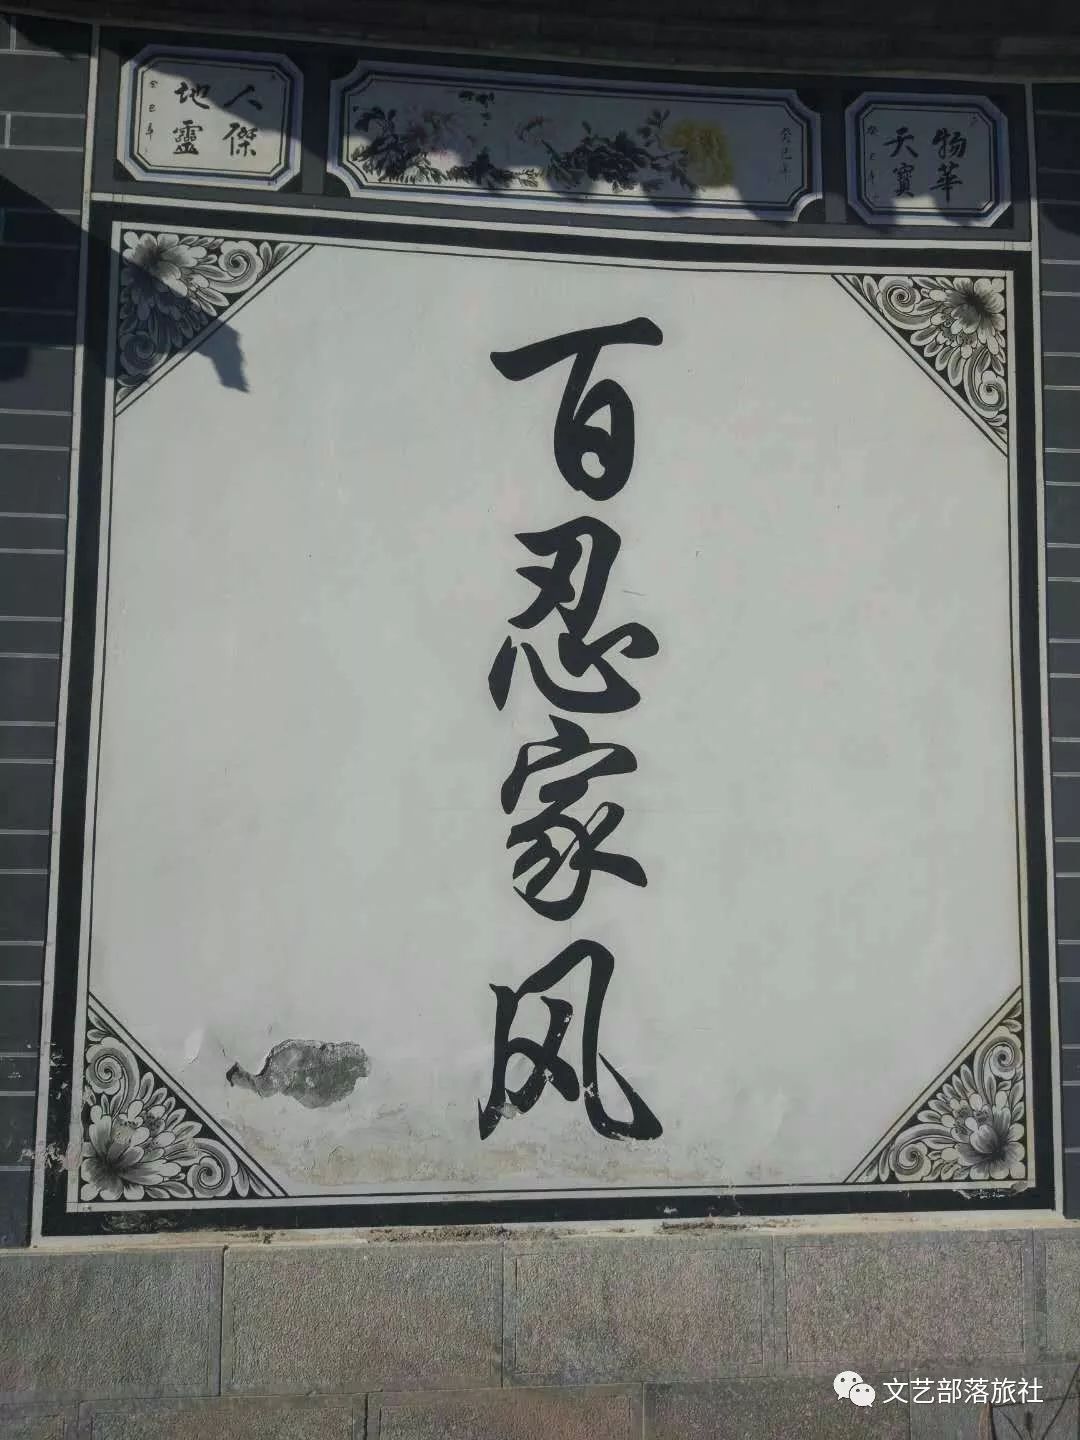 人傑
地靈
癸巳年
癸巳年
物華
天寶
癸巳年
百忍家风
文艺部落旅社